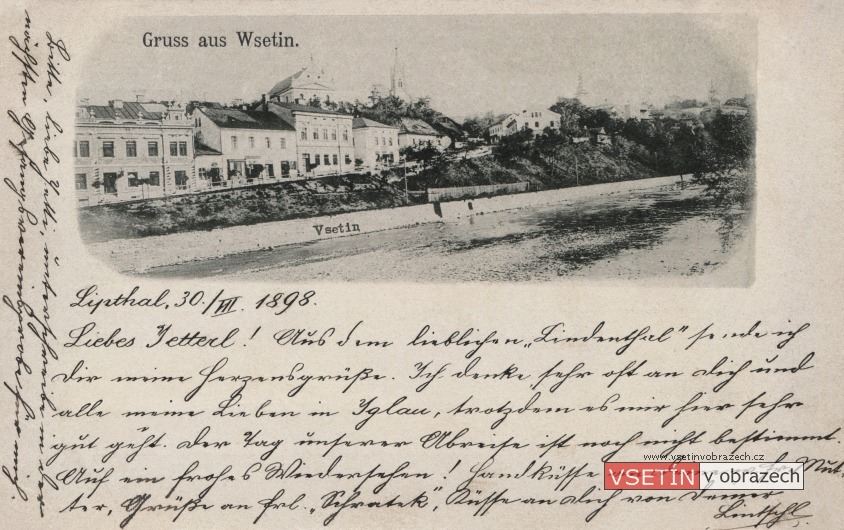 Gruss aus Wsetin.
Vsetin
Lipthal, 30./III. 1898.
Liebes Jetterl! Aus dem lieblichen „Lindenthal" sende ich
Dir meine Herzensgrüße. Ich denke sehr oft an Dich und
alle meine Lieben in Iglau, trotzdem es mir hier sehr
gut geht. Der Tag unserer Abreise ist noch nicht bestimmt.
Auf ein frohes Wiedersehen! Handküsse Mut-
ter, Grüße an Frl. „Schratek", Küsse an Dich von Deiner
Lintschl
Bitte, liebe Jetti,
www.vsetinvobrazech.cz
VSETIN v obrazech